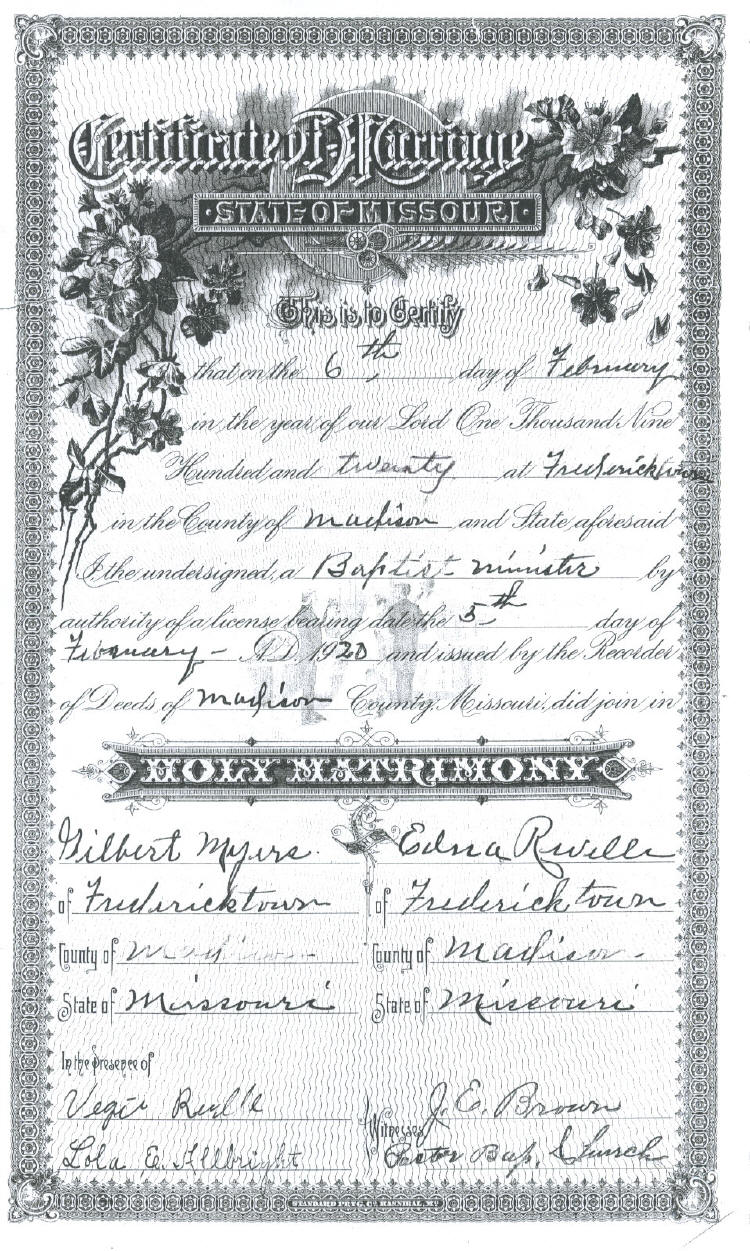 Certificate of Marriage
STATE OF MISSOURI
This is to Certify
that on the 6th day of February
in the year of our Lord One Thousand Nine
Hundred and twenty at Fredericktown
in the County of Madison and State aforesaid
I the undersigned, a Baptist minister by
authority of a license bearing date the 5th day of
February A.D. 1920 and issued by the Recorder
of Deeds of Madison County, Missouri, did join in
HOLY MATRIMONY
Gilbert Myers Edna Revelle
of Fredericktown of Fredericktown
County of Madison County of Madison
State of Missouri State of Missouri
In the Presence of
J. E. Brown
Witnesses
Lola E. Allbright Bap. Church